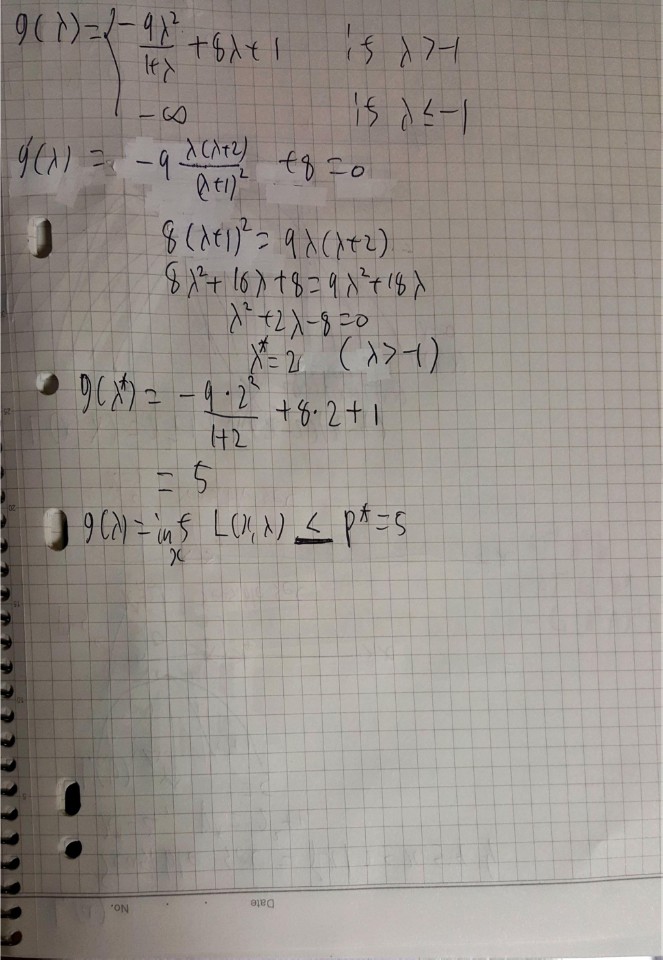 g(λ) = { -9λ²/(1+λ) + 8λ+1 if λ>-1
-∞ if λ≤-1
g'(λ) = -9 λ(λ+2)/(λ+1)² +8=0
8(λ+1)²=9λ(λ+2)
8λ²+16λ+8=9λ²+18λ
λ²+2λ-8=0
λ*=2 (λ>-1)
g(λ*) = -9·2²/(1+2) +8·2+1
= 5
g(λ)=inf L(x,λ) ≤ p*=5
x
Date No.